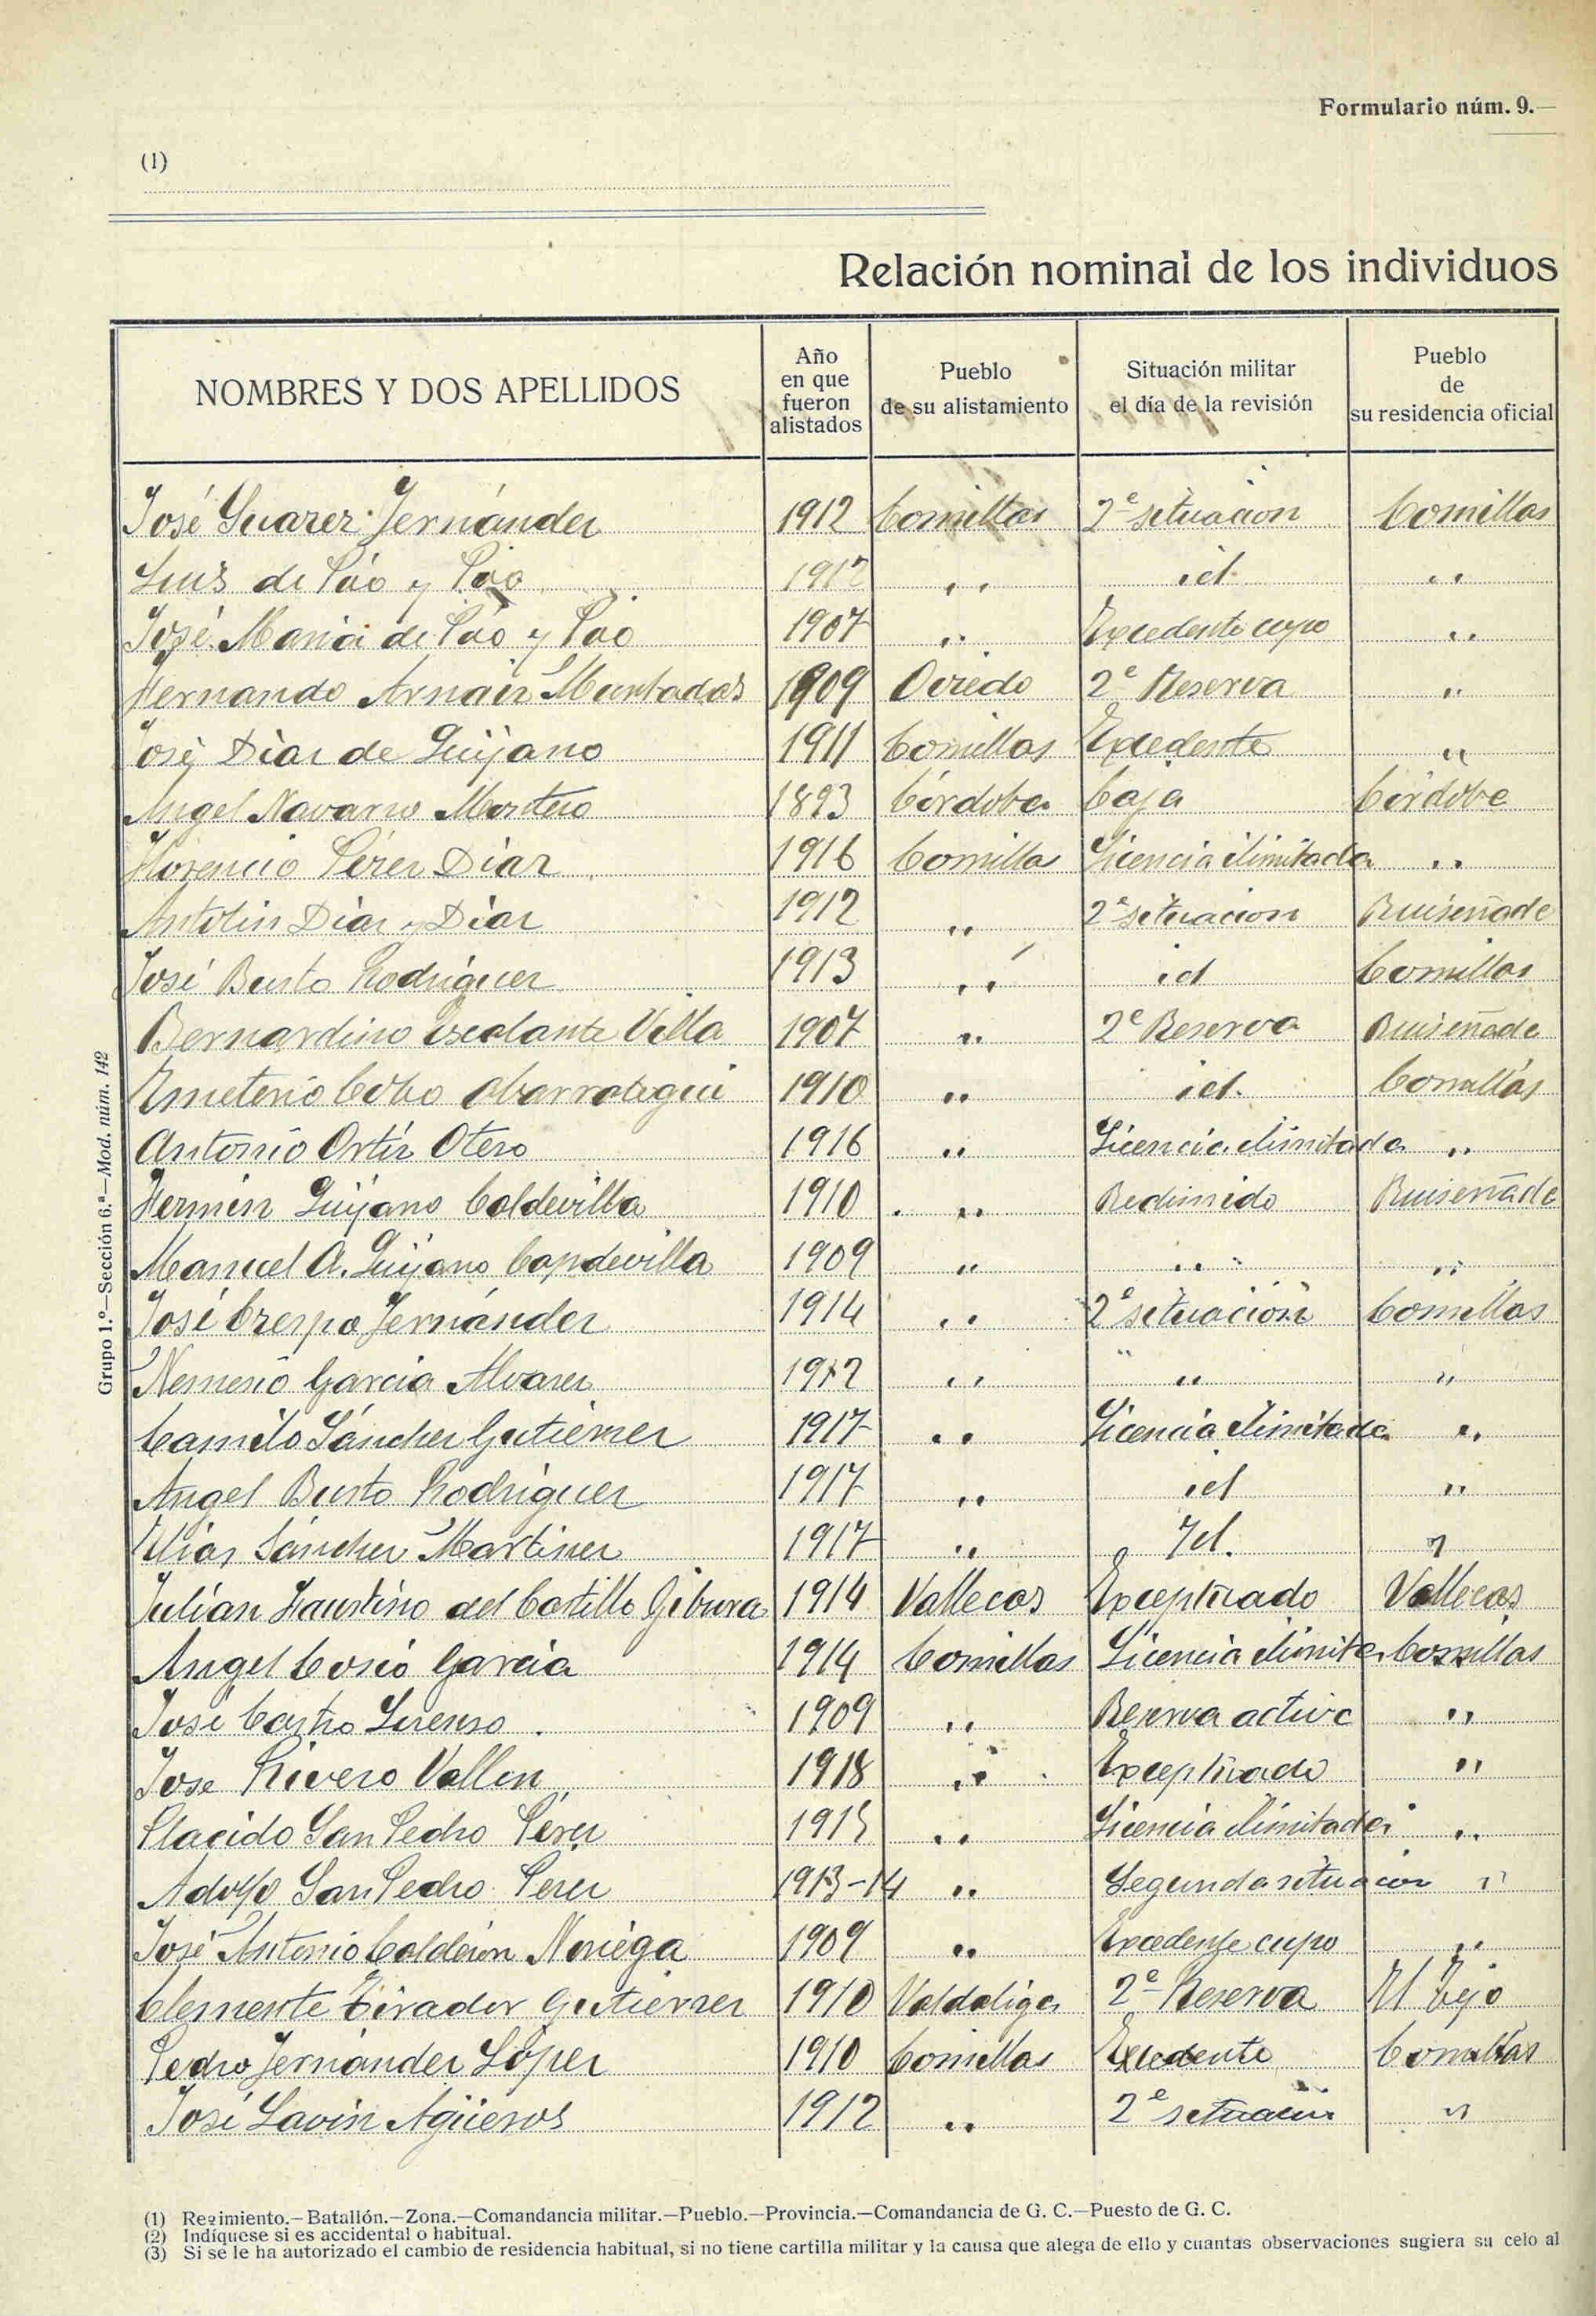 Formulario núm. 9.—
(1)
Relación nominal de los individuos
NOMBRES Y DOS APELLIDOS
Año en que fueron alistados
Pueblo de su alistamiento
Situación militar el día de la revisión
Pueblo de su residencia oficial
José Suarez Fernández 1912 Comillas 2ª situacion Comillas
Luis de Páo y Páo 1912 ,, id. ,,
José Maria de Páo y Páo 1907 ,, Excedente cupo ,,
Fernando Arnaiz Muntadas 1909 Oviedo 2ª Reserva ,,
José Diaz de Quijano 1911 Comillas Excedente ,,
Angel Navarro Montero 1893 Córdoba Caja Córdoba
Florencio Pérez Diaz 1916 Comillas Licencia ilimitada ,,
Antolin Diaz y Diaz 1912 ,, 2ª situacion Ruiseñada
José Busto Rodriguez 1913 ,, id Comillas
Bernardino Escalante Villa 1907 ,, 2ª Reserva Ruiseñada
Emeterio Cobo 1910 ,, id. Comillas
Antonio Ortiz Otero 1916 ,, Licencia ilimitada ,,
Fermin Quijano Caldevilla 1910 ,, Redimido Ruiseñada
Manuel A. Quijano Capdevilla 1909 ,, ,, ,,
José Crespo Fernández 1914 ,, 2ª situación Comillas
Nemesio Garcia Alvarez 1912 ,, ,, ,,
Camilo Sánchez Gutierrez 1917 ,, Licencia ilimitada ,,
Angel Busto Rodriguez 1917 ,, id ,,
Elias Sánchez Martinez 1917 ,, Id. ,,
Julian Faustino del Castillo 1914 Vallecas Exceptuado Vallecas
Angel Cosio Garcia 1914 Comillas Licencia ilimita Comillas
José Castro Lorenzo 1909 ,, Reserva activa ,,
Jose Rivero Vallin 1918 ,, Exceptuado ,,
Placido San Pedro Pérez 1915 ,, Licencia ilimitada ,,
Adolfo San Pedro Perez 1913-14 ,, Segunda situacion ,,
José Antonio Calderón Noriega 1909 ,, Excedente cupo ,,
Clemente Tirador Gutierrez 1910 Valdaliga 2ª Reserva El Tejo
Pedro Fernández López 1910 Comillas Excedente Comillas
José Lavin Agüeros 1912 ,, 2ª situacion ,,
Grupo 1.º—Sección 6.ª—Mod. núm. 142
(1) Regimiento.—Batallón.—Zona.—Comandancia militar.—Pueblo.—Provincia.—Comandancia de G. C.—Puesto de G. C.
(2) Indíquese si es accidental o habitual.
(3) Si se le ha autorizado el cambio de residencia habitual, si no tiene cartilla militar y la causa que alega de ello y cuantas observaciones sugiera su celo al